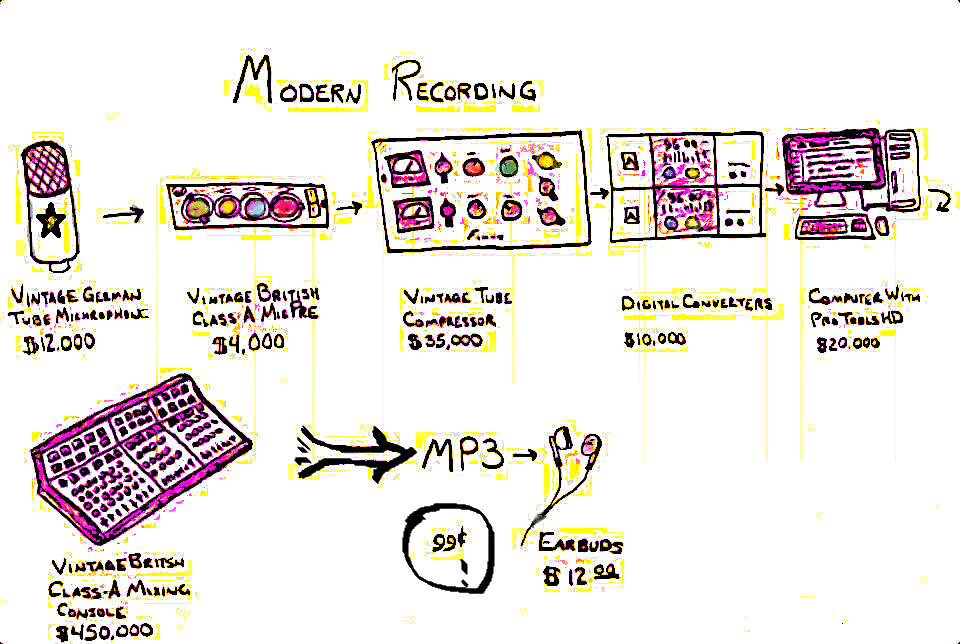 MODERN RECORDING
VINTAGE GERMAN
TUBE MICHROPHONE
$12,000
VINTAGE BRITISH
CLASS-A MICPRE
$4,000
VINTAGE TUBE
COMPRESSOR
$35,000
DIGITAL CONVERTERS
$10,000
COMPUTER WITH
PRO TOOLS HD
$20,000
MP3
99¢
EARBUDS
$12.00
VINTAGE BRITSH
CLASS-A MIXING
CONSOLE
$450,000